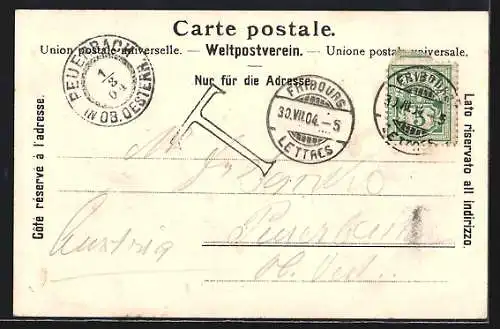 Carte postale.
Union postale universelle. – Weltpostverein. – Unione postale universale.
Nur für die Adresse.
PEUERBACH
IN OB. OESTERR.
T
FRIBOURG
30.VII.04.–5
LETTRES
FRIBOURG
LETTRES
5
Côté réservé à l'adresse.
Lato riservato all indirizzo.
Peuerbach
Austria
Ob. Oest.